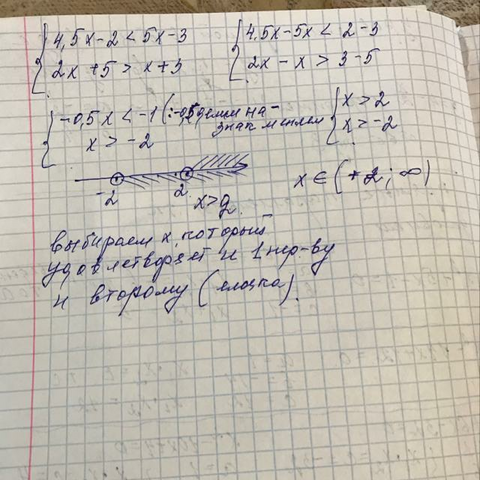 4,5x-2<5x-3
2x+5>x+3
4,5x-5x<2-3
2x-x>3-5
-0,5x<-1 (:-0,5 делим на -
знак меняем
x>-2
x>2
x>-2
-2 2
x>2
x∈(+2;∞)
выбираем x, который
удовлетворяет и 1 нер-ву
и второму (ёлочка).